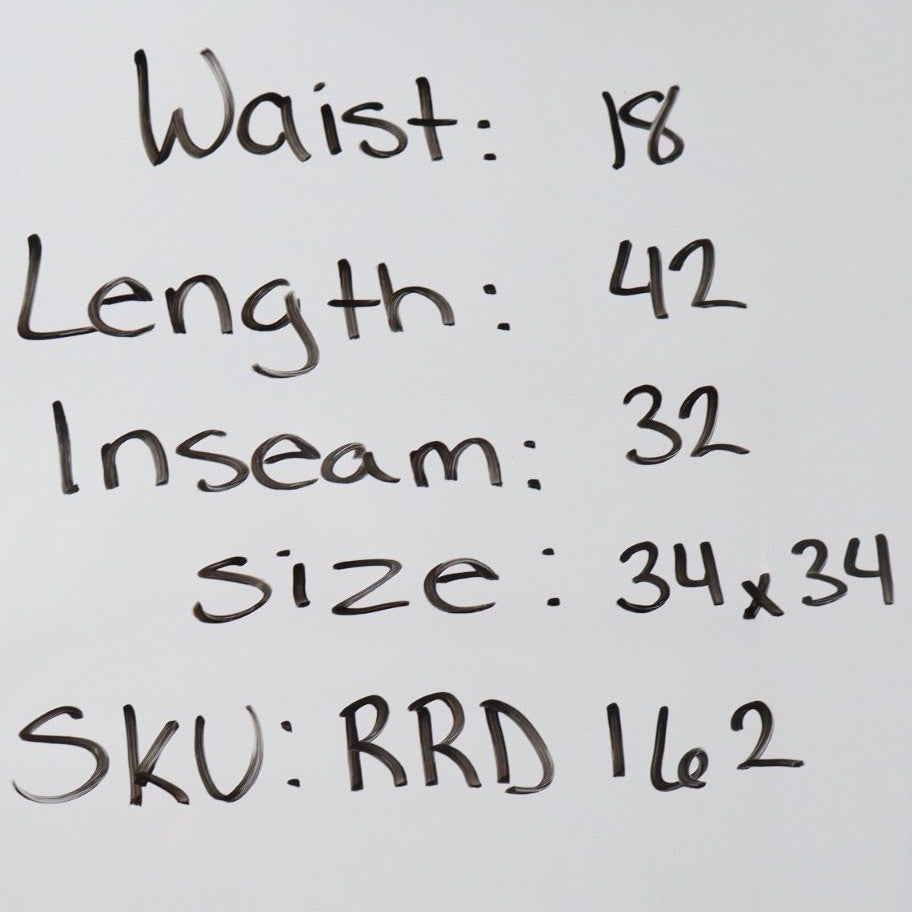 Waist: 18
Length: 42
Inseam: 32
Size: 34x34
SKU: RRD 162